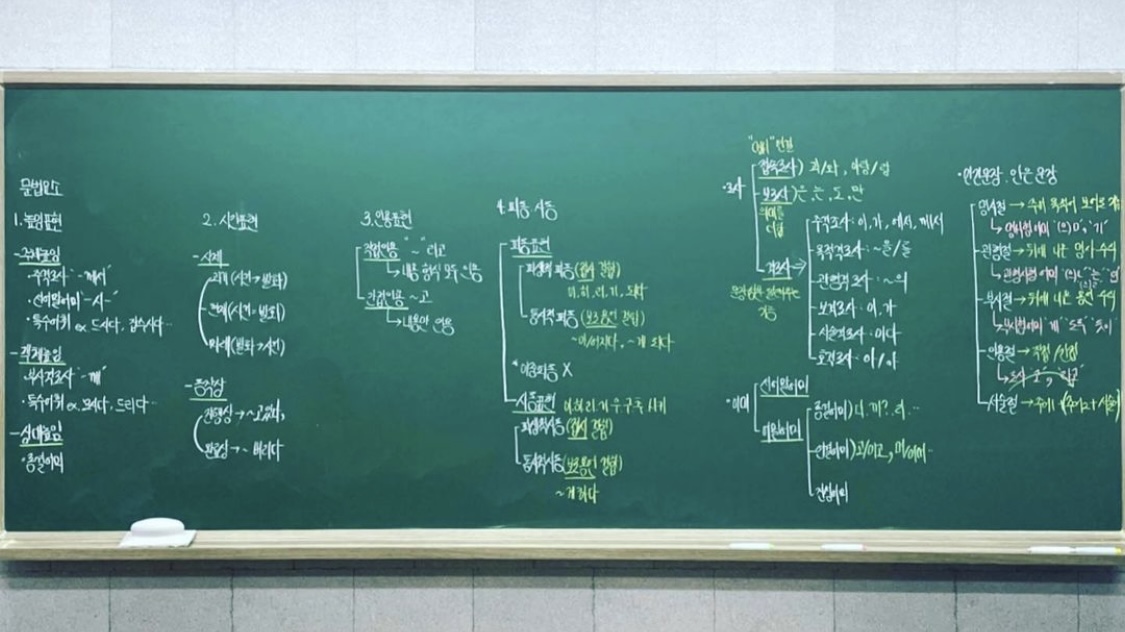 문법요소
1. 높임표현
- 주체높임
· 주격조사 "-께서"
· 선어말어미 "-시-"
· 특수어휘 ex. 드시다, 잡수시다…
- 객체높임
· 부사격조사 "~께"
· 특수어휘 ex. 모시다, 드리다…
- 상대높임
· 종결어미
2. 시간표현
- 시제
과거 (사건→발화)
현재 (사건=발화)
미래 (발화→사건)
- 동작상
진행상 → ~고있다,
완료상 → ~버리다
3. 인용표현
직접인용 "~" 라고
↳ 내용 형식 모두 인용
간접인용 ~고
↳ 내용만 인용
4. 피동 사동
피동표현
파생적 피동 (접사 결합)
이, 히, 리, 기, 되다
통사적 피동 (보조용언 결합)
~아/어지다, ~게 되다
*이중피동 X
사동표현 이 히 리 기 우 구 추 시키
파생적사동 (접사 결합)
통사적사동 (보조용언 결합)
~게 하다
· 조사
접속조사) 과/와, 이랑/랑
보조사) 은, 는, 도, 만
의미를 더함
격조사 →
주격조사 : 이, 가, 에서, 께서
목적격조사 : ~을/를
관형격조사 : ~의
보격조사 : 이, 가
서술격조사 : 이다
호격조사 : 이/아
· 어미
선어말어미
어말어미
종결어미) 다. 까?. 라…
연결어미) 고/이고, 며/이며…
전성어미
· 안긴문장. 안은 문장
명사절 → 주어 목적어 보어로
↳ 명사형 어미 "(으)ㅁ", "기"
관형절 → 뒤에 나온 명사 수식
↳ 관형사형 어미
부사절 → 뒤에 나온 용언 수식
↳ 부사형어미 "게" "도록"
인용절 → 직접/간접
↳ 조사 "고", "라고"
서술절 → 주어+(주어+서술어)